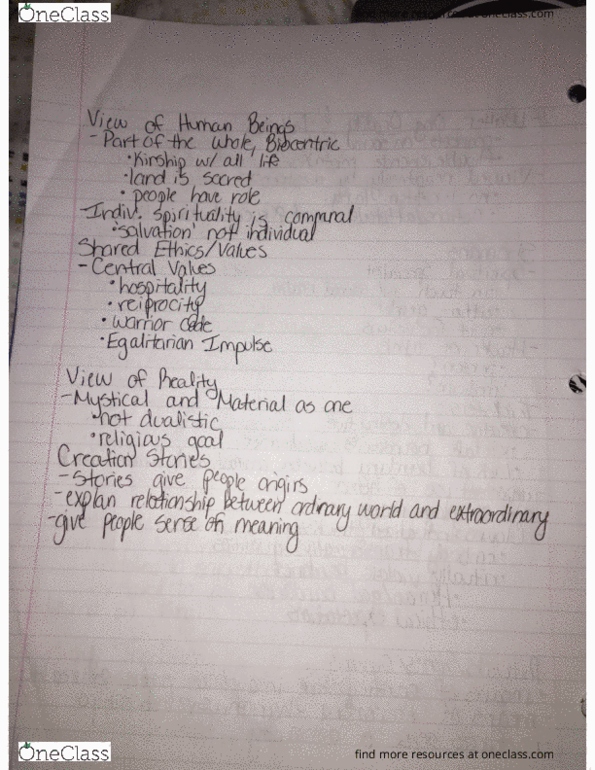 OneClass
find more resources at oneclass.com
View of Human Beings
- Part of the whole, Biocentric
• Kinship w/ all life
• land is sacred
• people have role
- Indiv. Spirituality is communal
• 'salvation' not individual
Shared Ethics/Values
- Central Values
• hospitality
• reciprocity
• warrior code
• Egalitarian Impulse
View of Reality
- Mystical and Material as one
• not dualistic
• religious goal
Creation Stories
- Stories give people
- explan relationship between ordinary world and extraordinary
- give people sense of meaning
OneClass
find more resources at oneclass.com